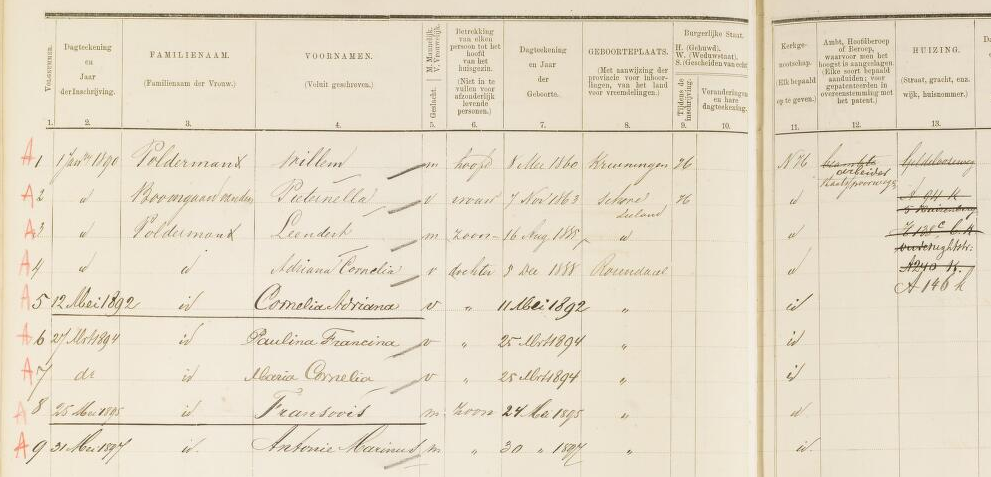 Burgerlijke Staat.
Volgnummer. Dagteekening en Jaar der Inschrijving. FAMILIENAAM. (Familienaam der Vrouw.) VOORNAMEN. (Voluit geschreven.) M. Mannelijk. V. Vrouwelijk. Geslacht. Betrekking van elken persoon tot het hoofd van het huisgezin. (Niet in te vullen voor afzonderlijk levende personen.) Dagteekening en Jaar der Geboorte. GEBOORTEPLAATS. (Met aanwijzing der provincie voor inboorlingen, van het land voor vreemdelingen.) H. (Gehuwd). W. (Weduwstaat). S. (Gescheiden van echt Tijdens de inschrijving. Veranderingen en hare dagteekening. Kerkgenootschap. (Elk bepaald op te geven.) Ambt, Hoofdberoep of Beroep, waarvoor men het hoogst is aangeslagen. (Elke soort bepaald aanduiden; voor gepatenteerden in overeenstemming met het patent.) HUIZING. (Straat, gracht, enz. wijk, huisnommer.)
1. 2. 3. 4. 5. 6. 7. 8. 9. 10. 11. 12. 13.
A 1 1 Jan 1890 Poldermans Willem m hoofd 8 Mei 1860 Kruiningen H NH arbeider
Staatsspoorweg
A 2 id v vrouw 7 Nov 1863 Schore H id A 94 K
Zeeland
A 3 id Poldermans Leendert m zoon 16 Aug. 1885 id id
A 4 id id Adriana Cornelia v dochter 9 Dec 1888 Roosendaal id A 240 K.
A 146 k
A 5 12 Mei 1892 id Cornelia Adriana v " 11 Mei 1892 " id
A 6 27 Mrt 1894 id Paulina Francina v " 25 Mrt 1894 " id
A 7 do id Maria Cornelia v " 25 Mrt 1894 " id
A 8 25 Mei 1895 id m zoon 24 Mei 1895 " id
A 9 31 Mei 1897 id. Antonie Marinus m " 30 " 1897 " id.